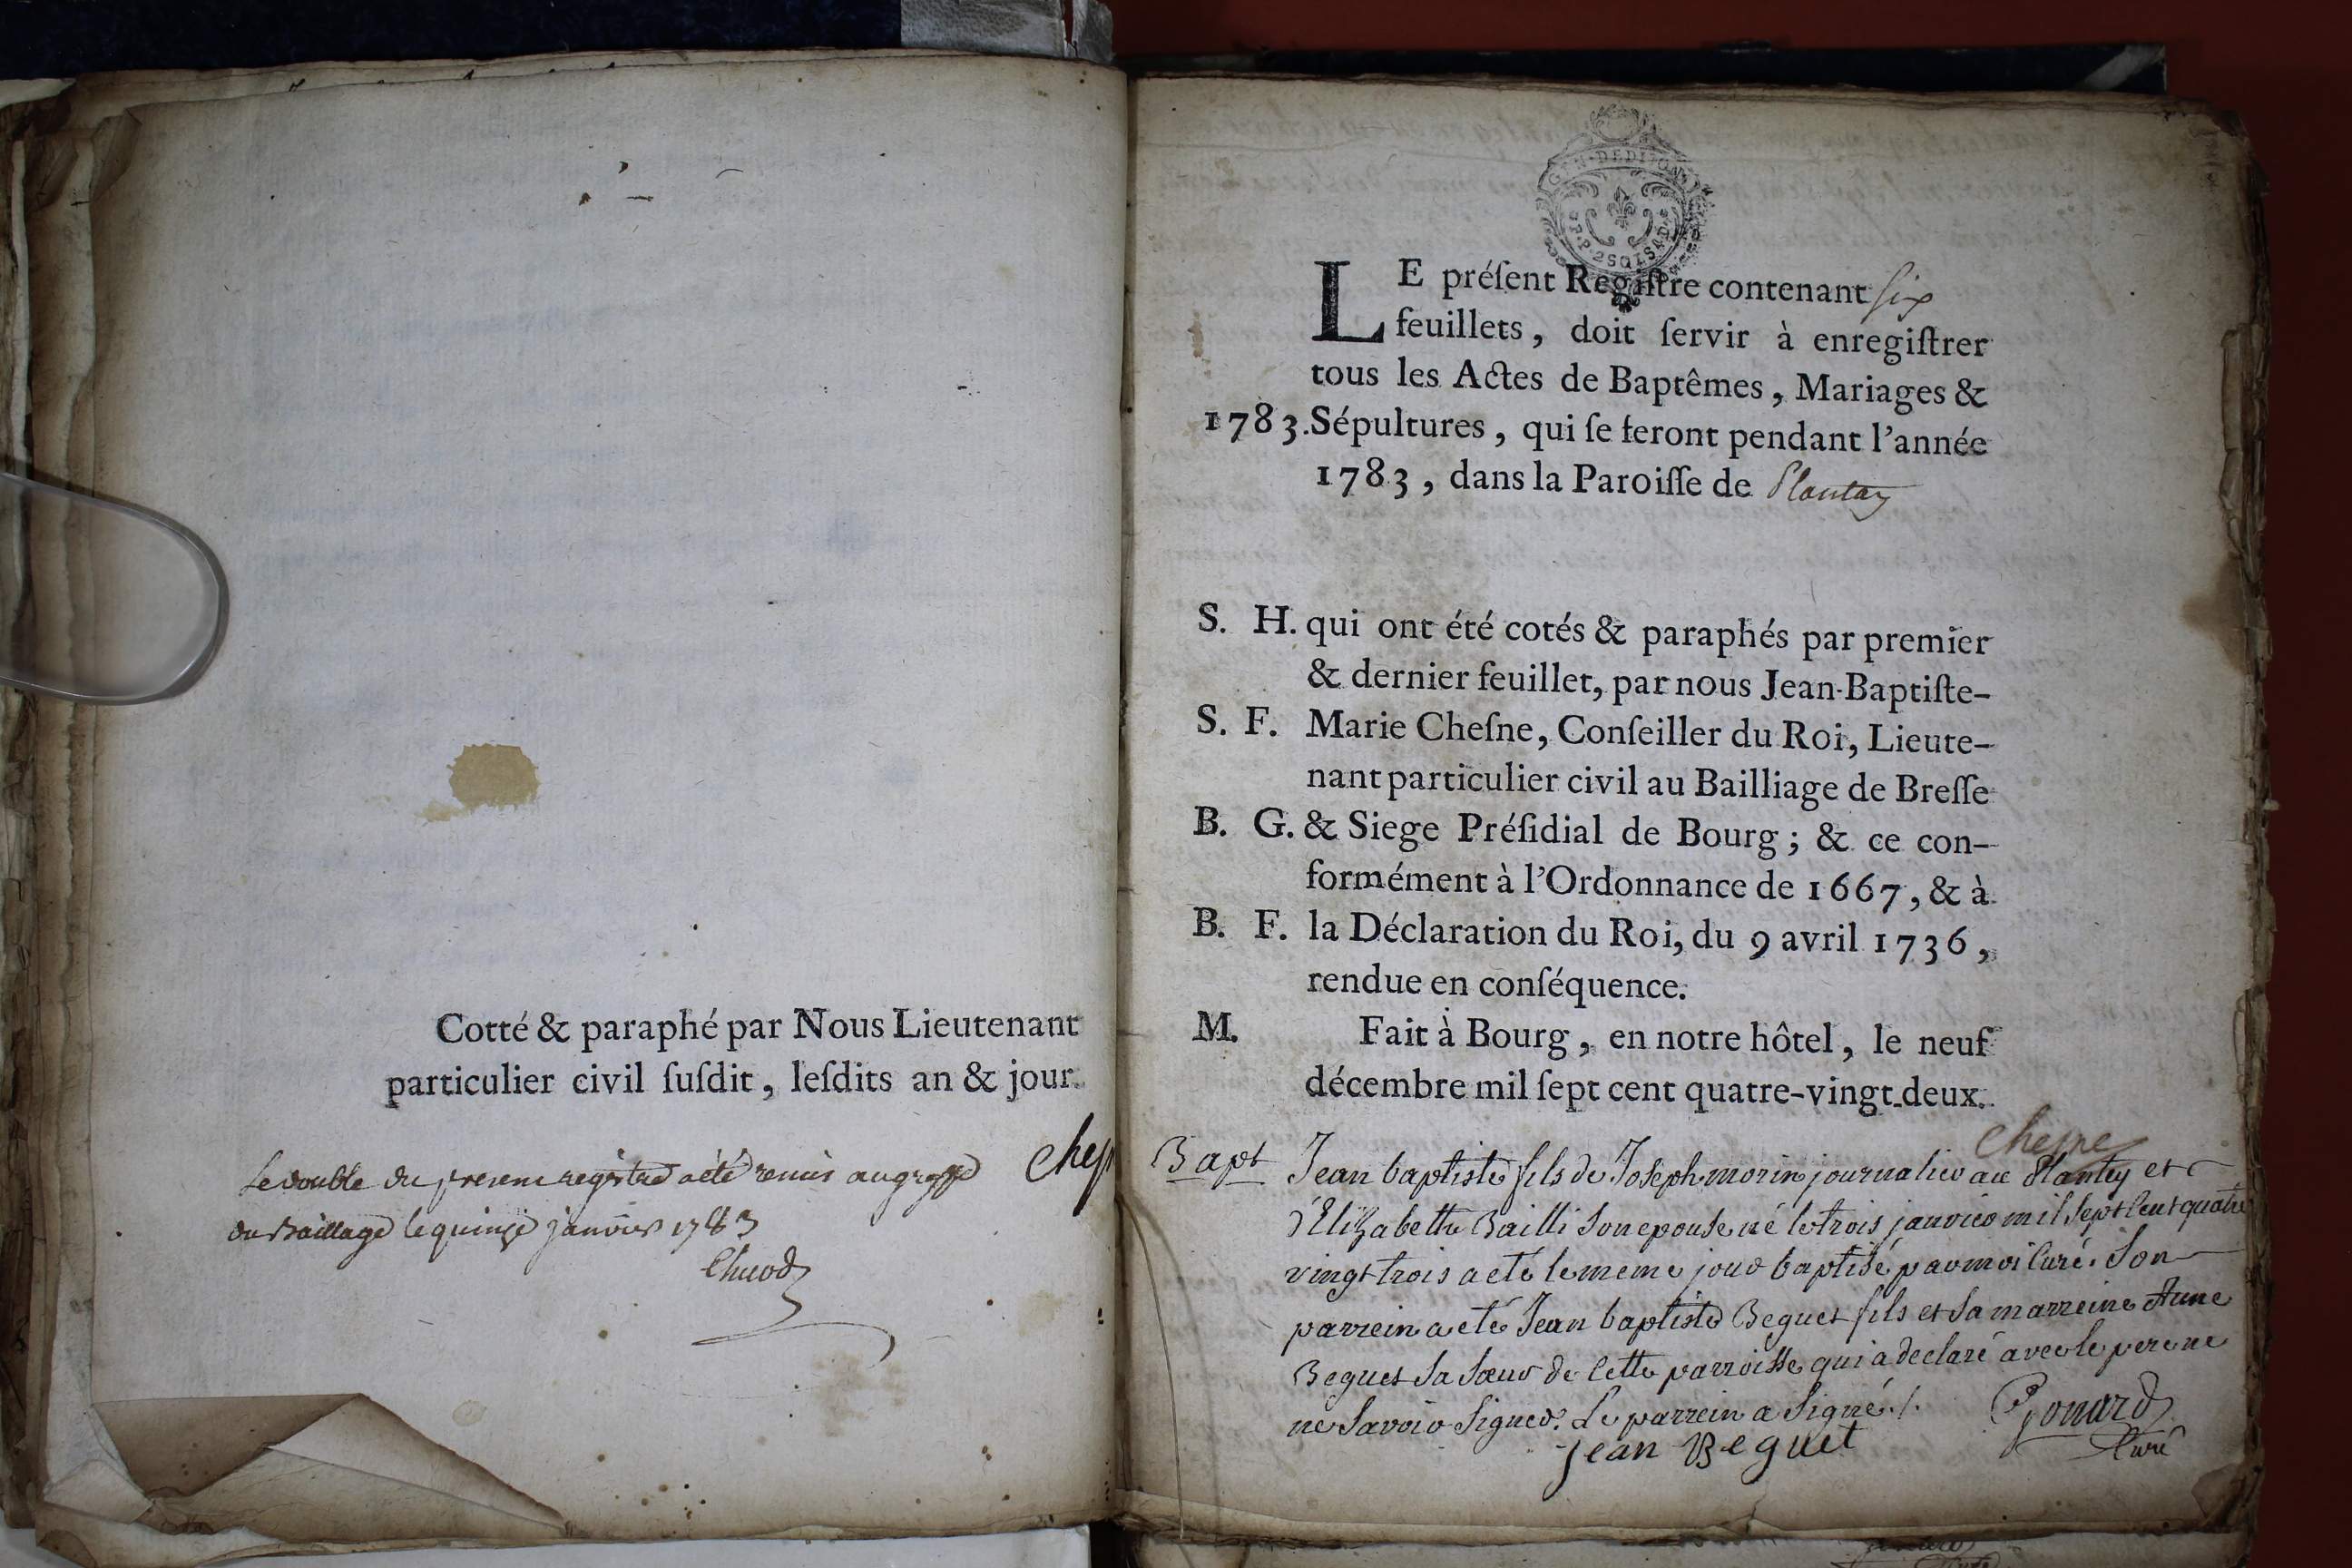 Cotté & paraphé par Nous Lieutenant
particulier civil ſuſdit, leſdits an & jour.
Le double du present registre a été remis au greffe
du Baillage le quinze janvier 1783
GEN · DEDIJON
LE préſent Regiſtre contenant six
feuillets, doit ſervir à enregiſtrer
tous les Actes de Baptêmes, Mariages &
1783. Sépultures, qui ſe feront pendant l'année
1783, dans la Paroiſſe de Plantay
S. H. qui ont été cotés & paraphés par premier
& dernier feuillet, par nous Jean-Baptiſte-
S. F. Marie Cheſne, Conſeiller du Roi, Lieute-
nant particulier civil au Bailliage de Breſſe
B. G. & Siege Préſidial de Bourg; & ce con-
formément à l'Ordonnance de 1667, & à
B. F. la Déclaration du Roi, du 9 avril 1736,
rendue en conſéquence.
M. Fait à Bourg, en notre hôtel, le neuf
décembre mil ſept cent quatre-vingt-deux.
Chesne
Bapt Jean baptiste fils de Joseph morin journalier au Plantey et
d'Elizabeth Bailli son epouse né le trois janvier mil sept cent quatre
vingt trois a eté le meme jour baptisé par moi curé. Son
parrein a eté Jean baptiste Beguet fils et sa marreine Anne
Beguet sa sœur de cette parroisse qui a declaré avec le pere ne
ne savoir signer. Le parrein a signé ./.
Gonard
curé
Jean Beguet